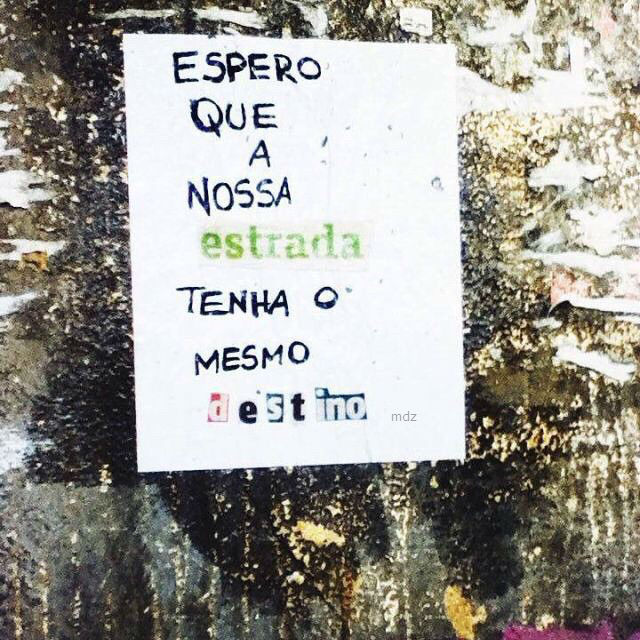 ESPERO
QUE
A
NOSSA
estrada
TENHA O
MESMO
destino
mdz